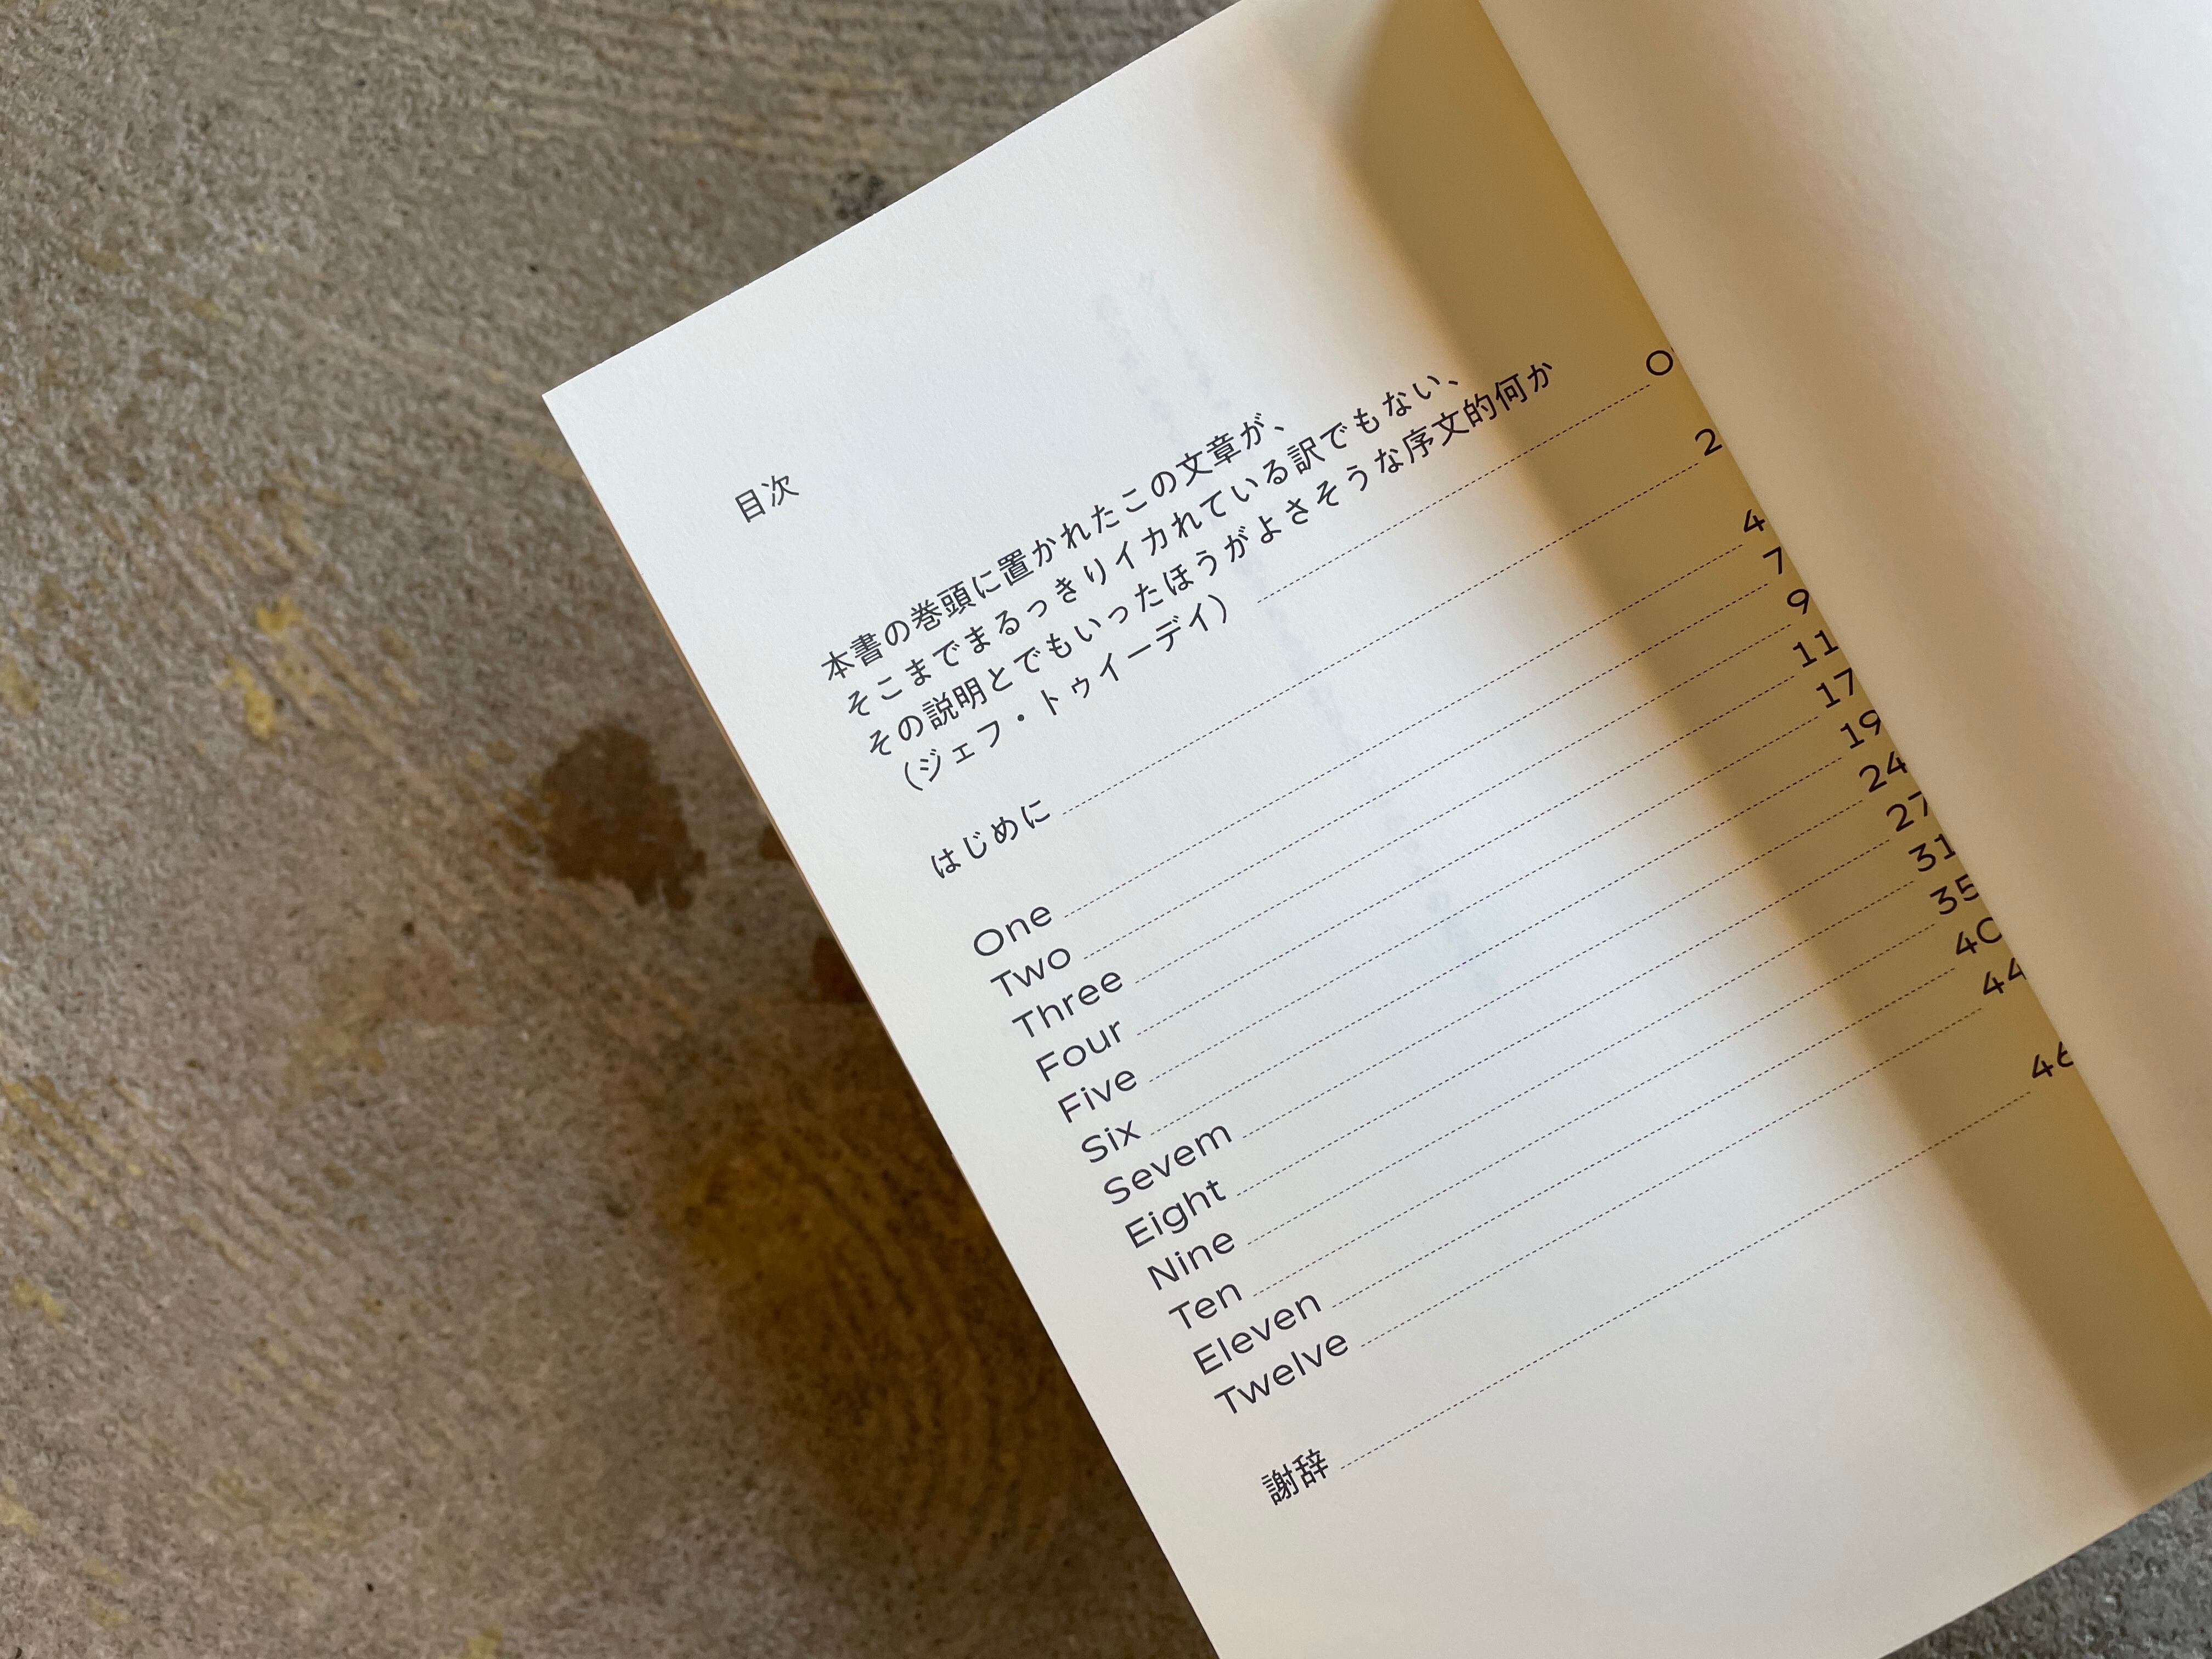 目次
本書の巻頭に置かれたこの文章が、
そこまでまるっきりイカれている訳でもない、
その説明とでもいったほうがよさそうな序文的何か
（ジェフ・トゥイーデイ） 0
はじめに 2
One 4
Two 7
Three 9
Four 11
Five 17
Six 19
Sevem 24
Eight 27
Nine 31
Ten 35
Eleven 40
Twelve 44
謝辞 46